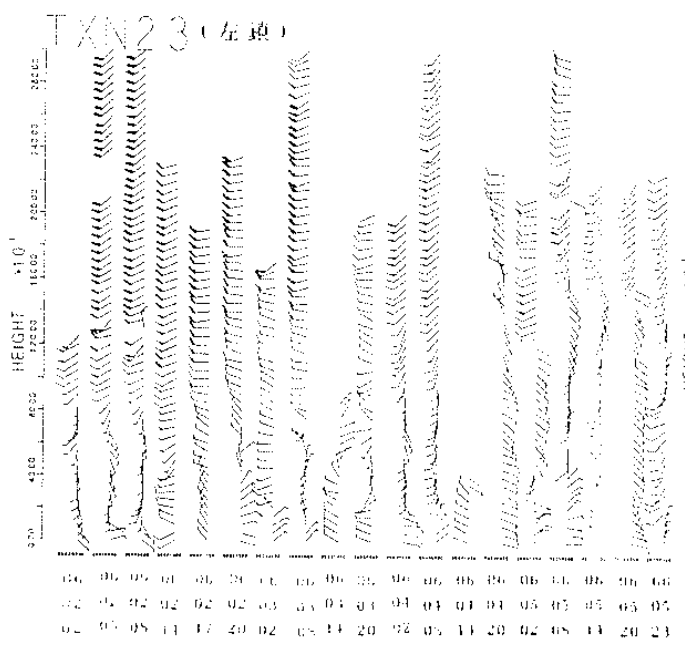 TXN23 (左鎮)
280.00
240.00
200.00
160.00
120.00
80.00
40.00
0.00
HEIGHT *10¹
06 06 06 06 06 06 06 06 06 06 06 06 06 06 06 06 06 06 06
02 02 02 02 02 02 03 03 03 03 04 04 04 04 05 05 05 05 05
02 05 08 14 17 20 02 08 14 20 02 08 14 20 02 08 14 20 23